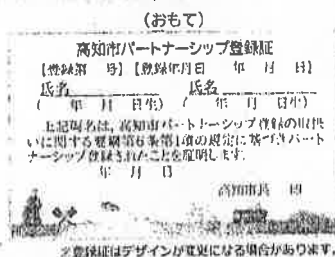 (おもて)
高知市パートナーシップ登録証
【登録第 号】【登録年月日 年 月 日】
氏名 氏名
( 年 月 日生) ( 年 月 日生)
上記両名は、高知市パートナーシップ登録の取扱
いに関する要綱第6条第1項の規定に基づきパート
ナーシップ登録されたことを証明します。
年 月 日
高知市長 印
※登録証はデザインが変更になる場合があります。